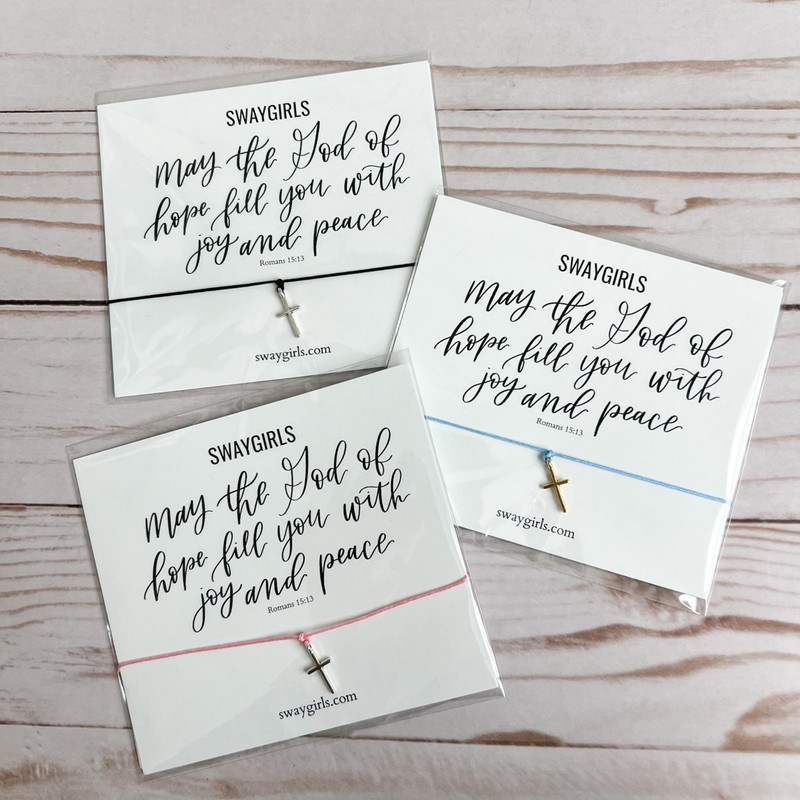 SWAYGIRLS
may the God of
hope fill you with
joy and peace
Romans 15:13
swaygirls.com
SWAYGIRLS
may the God of
hope fill you with
joy and peace
Romans 15:13
swaygirls.com
SWAYGIRLS
may the God of
hope fill you with
joy and peace
Romans 15:13
swaygirls.com